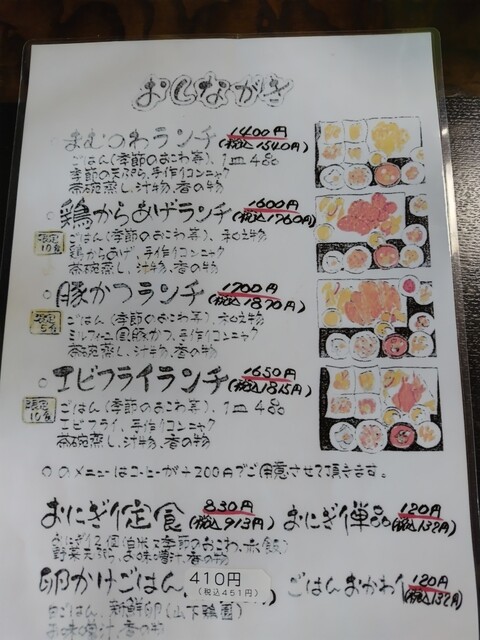 おしながき
まむつわランチ 1400円
(税込1540円)
ごはん(季節のおこわ等)、1皿4品
季節の天ぷら、手作りコンニャク
茶碗蒸し、汁物、香の物
○鶏からあげランチ 1600円
(税込1760円)
限定10食
ごはん(季節のおこわ等)、和え物
鶏からあげ、手作りコンニャク
茶碗蒸し、汁物、香の物
○豚かつランチ 1700円
(税込1870円)
ごはん(季節のおこわ等)、和え物
ミルフィーユ風豚かつ、手作りコンニャク
茶碗蒸し、汁物、香の物
○エビフライランチ 1650円
(税込1815円)
限定10食
ごはん(季節のおこわ等)、1皿4品
エビフライ、手作りコンニャク
茶碗蒸し、汁物、香の物
○のメニューはコーヒーが+200円でご用意させて頂きます。
おにぎり定食 830円
(税込913円)
おにぎり2個(白米と季節のおこわ、赤飯)
野菜天ぷら、お味噌汁、香の物
おにぎり単品 120円
(税込132円)
卵かけごはん 410円
(税込451円)
白ごはん、新鮮卵(山下鶏園)
お味噌汁、香の物
ごはんおかわり 120円
(税込132円)